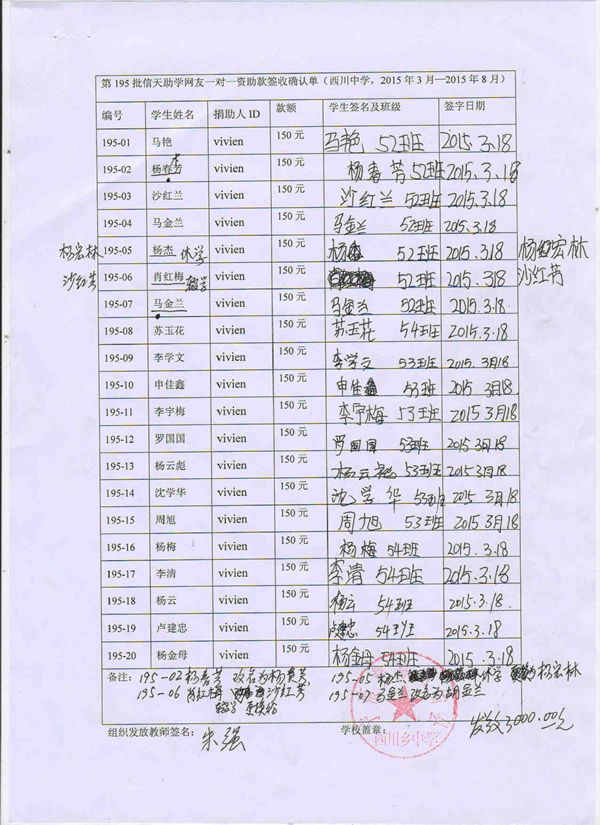 第 195 批信天助学网友一对一资助款签收确认单（西川中学，2015 年 3 月—2015 年 8 月）
编号 学生姓名 捐助人 ID 款额 学生签名及班级 签字日期
195-01 马艳 vivien 150 元 马艳 52班 2015.3.18
195-02 杨春芳 vivien 150 元 杨春芳 52班 2015.3.18
195-03 沙红兰 vivien 150 元 沙红兰 52班 2015.3.18
195-04 马金兰 vivien 150 元 马金兰 52班 2015.3.18
杨宏林 195-05 杨杰 休学 vivien 150 元 52班 2015.3.18 杨宏林
沙红芳 195-06 肖红梅 辍学 vivien 150 元 52班 2015.3.18 沙红芳
195-07 马金兰 vivien 150 元 马金兰 52班 2015.3.18
195-08 苏玉花 vivien 150 元 苏玉花 54班 2015.3.18
195-09 李学文 vivien 150 元 李学文 53班 2015.3月18
195-10 申佳鑫 vivien 150 元 申佳鑫 53班 2015.3月18
195-11 李宇梅 vivien 150 元 李宇梅 53班 2015 3月18
195-12 罗国国 vivien 150 元 罗国国 53班 2015.3月18
195-13 杨云彪 vivien 150 元 杨云彪 53班 2015.3月18
195-14 沈学华 vivien 150 元 沈学华 53班 2015 3月18
195-15 周旭 vivien 150 元 周旭 53班 2015 3月18
195-16 杨梅 vivien 150 元 杨梅 54班 2015.3.18
195-17 李清 vivien 150 元 李清 54班 2015.3.18
195-18 杨云 vivien 150 元 杨云 54班 2015.3.18.
195-19 卢建忠 vivien 150 元 卢建忠 54班 2015.3.18
195-20 杨金母 vivien 150 元 杨金母 54班 2015.3.18
备注： 195-02杨春芳 改名为杨 芳, 195-05 杨杰 休学 杨宏林
195-06 肖红梅 沙红芳 195-07 马金兰改名为胡金兰
辍学 更换给
组织发放教师签名： 朱强 学校盖章： 发款3000.00元
西川乡中学